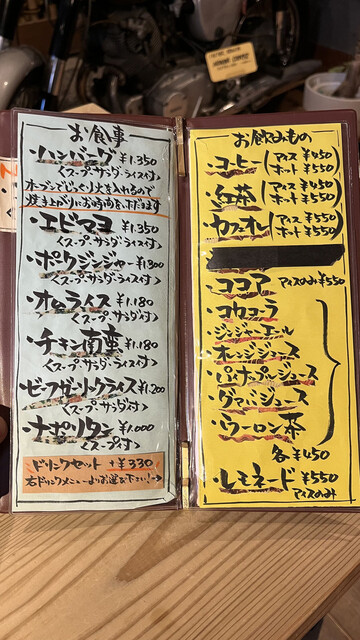 お食事
・ハンバーグ ¥1.350
〈スープ・サラダ・ライス付〉
オーブンでじっくり火を入れるので
焼き上がりにお時間を頂だきます
・エビマヨ ¥1.350
〈スープ・サラダ・ライス付〉
・ポークジンジャー ¥1.300
〈スープ・サラダ・ライス付〉
・オムライス ¥1.180
〈スープ・サラダ付〉
・チキン南蛮 ¥1.180
〈スープ・サラダ・ライス付〉
・ビーフガーリックライス ¥1.200
〈スープ・サラダ付〉
・ナポリタン ¥1.000
〈スープ付〉
ドリンクセット +¥330
右ドリンクメニューよりお選び下さい!→
お飲みもの
・コーヒー(アイス ¥450
ホット ¥550)
・紅茶(アイス ¥450
ホット ¥550)
・カフェオレ(アイス ¥550
ホット ¥550)
・ココア アイスのみ ¥550
・コカコーラ
・ジンジャーエール
・オレンジジュース
・パイナップルジュース
・グァバジュース
・ウーロン茶
各¥450
・レモネード ¥550
アイスのみ